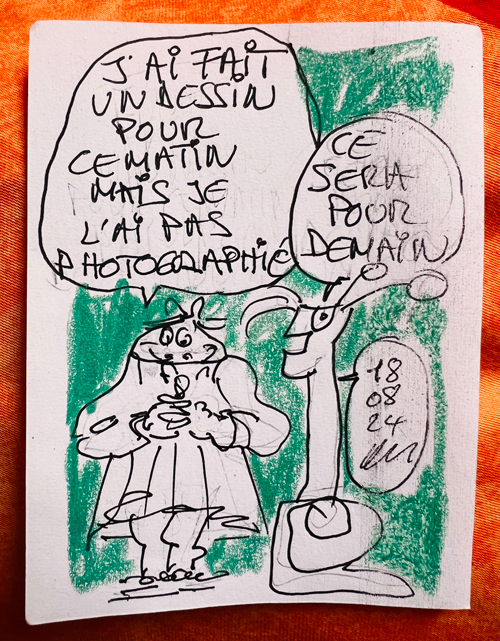 J'AI FAIT
UN DESSIN
POUR
CE MATIN
MAIS JE
L'AI PAS
PHOTOGRAPHIÉ
CE
SERA
POUR
DEMAIN
18
08
24